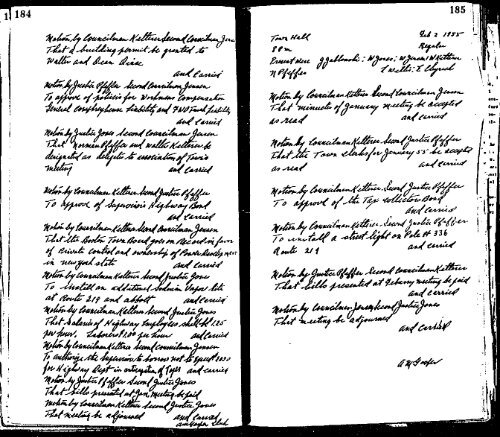 184
Motion by Councilman Kettner Second Councilman Jensen
That a building permit be granted to
Walter and
and Carried
Motion by Justice Pfeffer Second Councilman Jensen
To approve of policies for Workmans Compensation
General Comprehensive Liability and
and Carried
Motion by Justice Jones Second Councilman Jensen
That Norman Pfeffer and Walter Kettner be
designated as delegate to association of Towns
meeting and Carried
Motion by Councilman Kettner Second Justice Pfeffer
To approve of Supervisors Highway Bond
and Carried
Motion by Councilman Kettner Second Councilman Jensen
That the Boston Town Board goes on Record in favor
of Private control and ownership of Power development
in new york state and Carried
Motion by Councilman Kettner Second Justice Jones
To install an additional Sodium Vapor lite
at Route 219 and abbott and Carried
Motion by Councilman Kettner Second Justice Jones
That Salaries of Highway Employees shall be 1.25
per hour, Laborers 1.00 per hour and Carried
Motion by Councilman Kettner Second Councilman Jensen
To authorize the Supervisor to borrow not to exceed
for Highway Dept in anticipation of Taxes and Carried
Motion by Justice Pfeffer Second Justice Jones
That bills presented at Jan. Meeting be paid
Motion by Councilman Kettner Second Justice Jones
That meeting be adjourned and Carried
Clerk
185
Town Hall Feb 2 1955
8 Pm Regular
Present were G Jablonski: W Jones: W Jensen: W Kettner
N Pfeffer
Motion by Councilman Kettner Second Councilman Jensen
That minutes of January meeting be accepted
as read and carried
Motion by Councilman Kettner Second Justice Pfeffer
That the Town Clerks for January 55 be accepted
as read and carried
Motion by Councilman Kettner Second Justice Pfeffer
To approve of the Tax collector Bond
and Carried
Motion by Councilman Kettner Second Justice Pfeffer
To install a street light on Pole # 336
Route 219 and carried
Motion by Justice Pfeffer Second Councilman Kettner
That bills presented at Febuary meeting be paid
and carried
Motion by Councilman Jensen Second Justice Jones
That meeting be adjourned
and carried